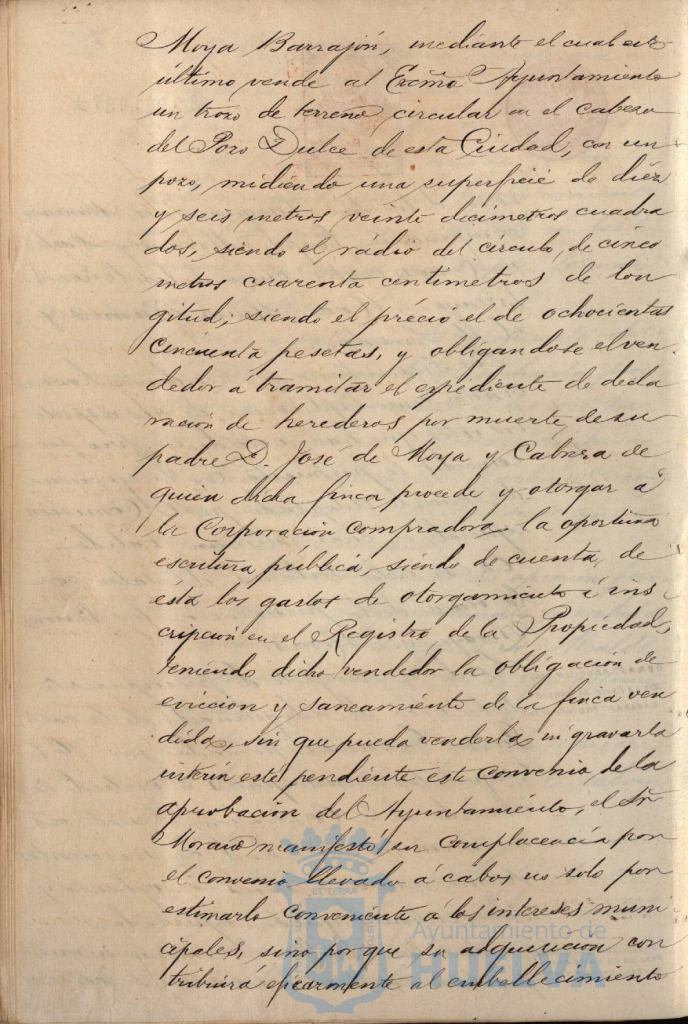 Moya Barrajón, mediante el cual este
último vende al Excmo Ayuntamiento
un trozo de terreno circular en el cabezo
del Pozo Dulce de esta Ciudad, con un
pozo, midiendo una superficie de diez
y seis metros veinte decímetros cuadra
dos, siendo el rádio del círculo, de cinco
metros cuarenta centímetros de lon
gitud; siendo el précio el de ochocientas
cincuenta pesetas, y obligandose el ven-
dedor á tramitar el expediente de decla
ración de herederos por muerte de su
padre D. José de Moya y Cabrera de
quien dicha finca procede y otorgar á
la Corporación compradora la oportuna
escritura pública, siendo de cuenta de
ésta los gastos de otorgamiento é ins-
cripción en el Registro de la Propiedad,
teniendo dicho vendedor la obligación de
eviccion y saneamiento de la finca ven
dida, sin que pueda venderla ni gravarla
interin esté pendiente este convenio de la
aprobación del Ayuntamiento, el Sr
manifestó su complacencia por
el convenio llevado á cabo, no solo por
estimarlo conveniente á los intereses muni
cipales, sino porque su adquisición con
tribuirá eficazmente al embellecimiento
Ayuntamiento de
HUELVA